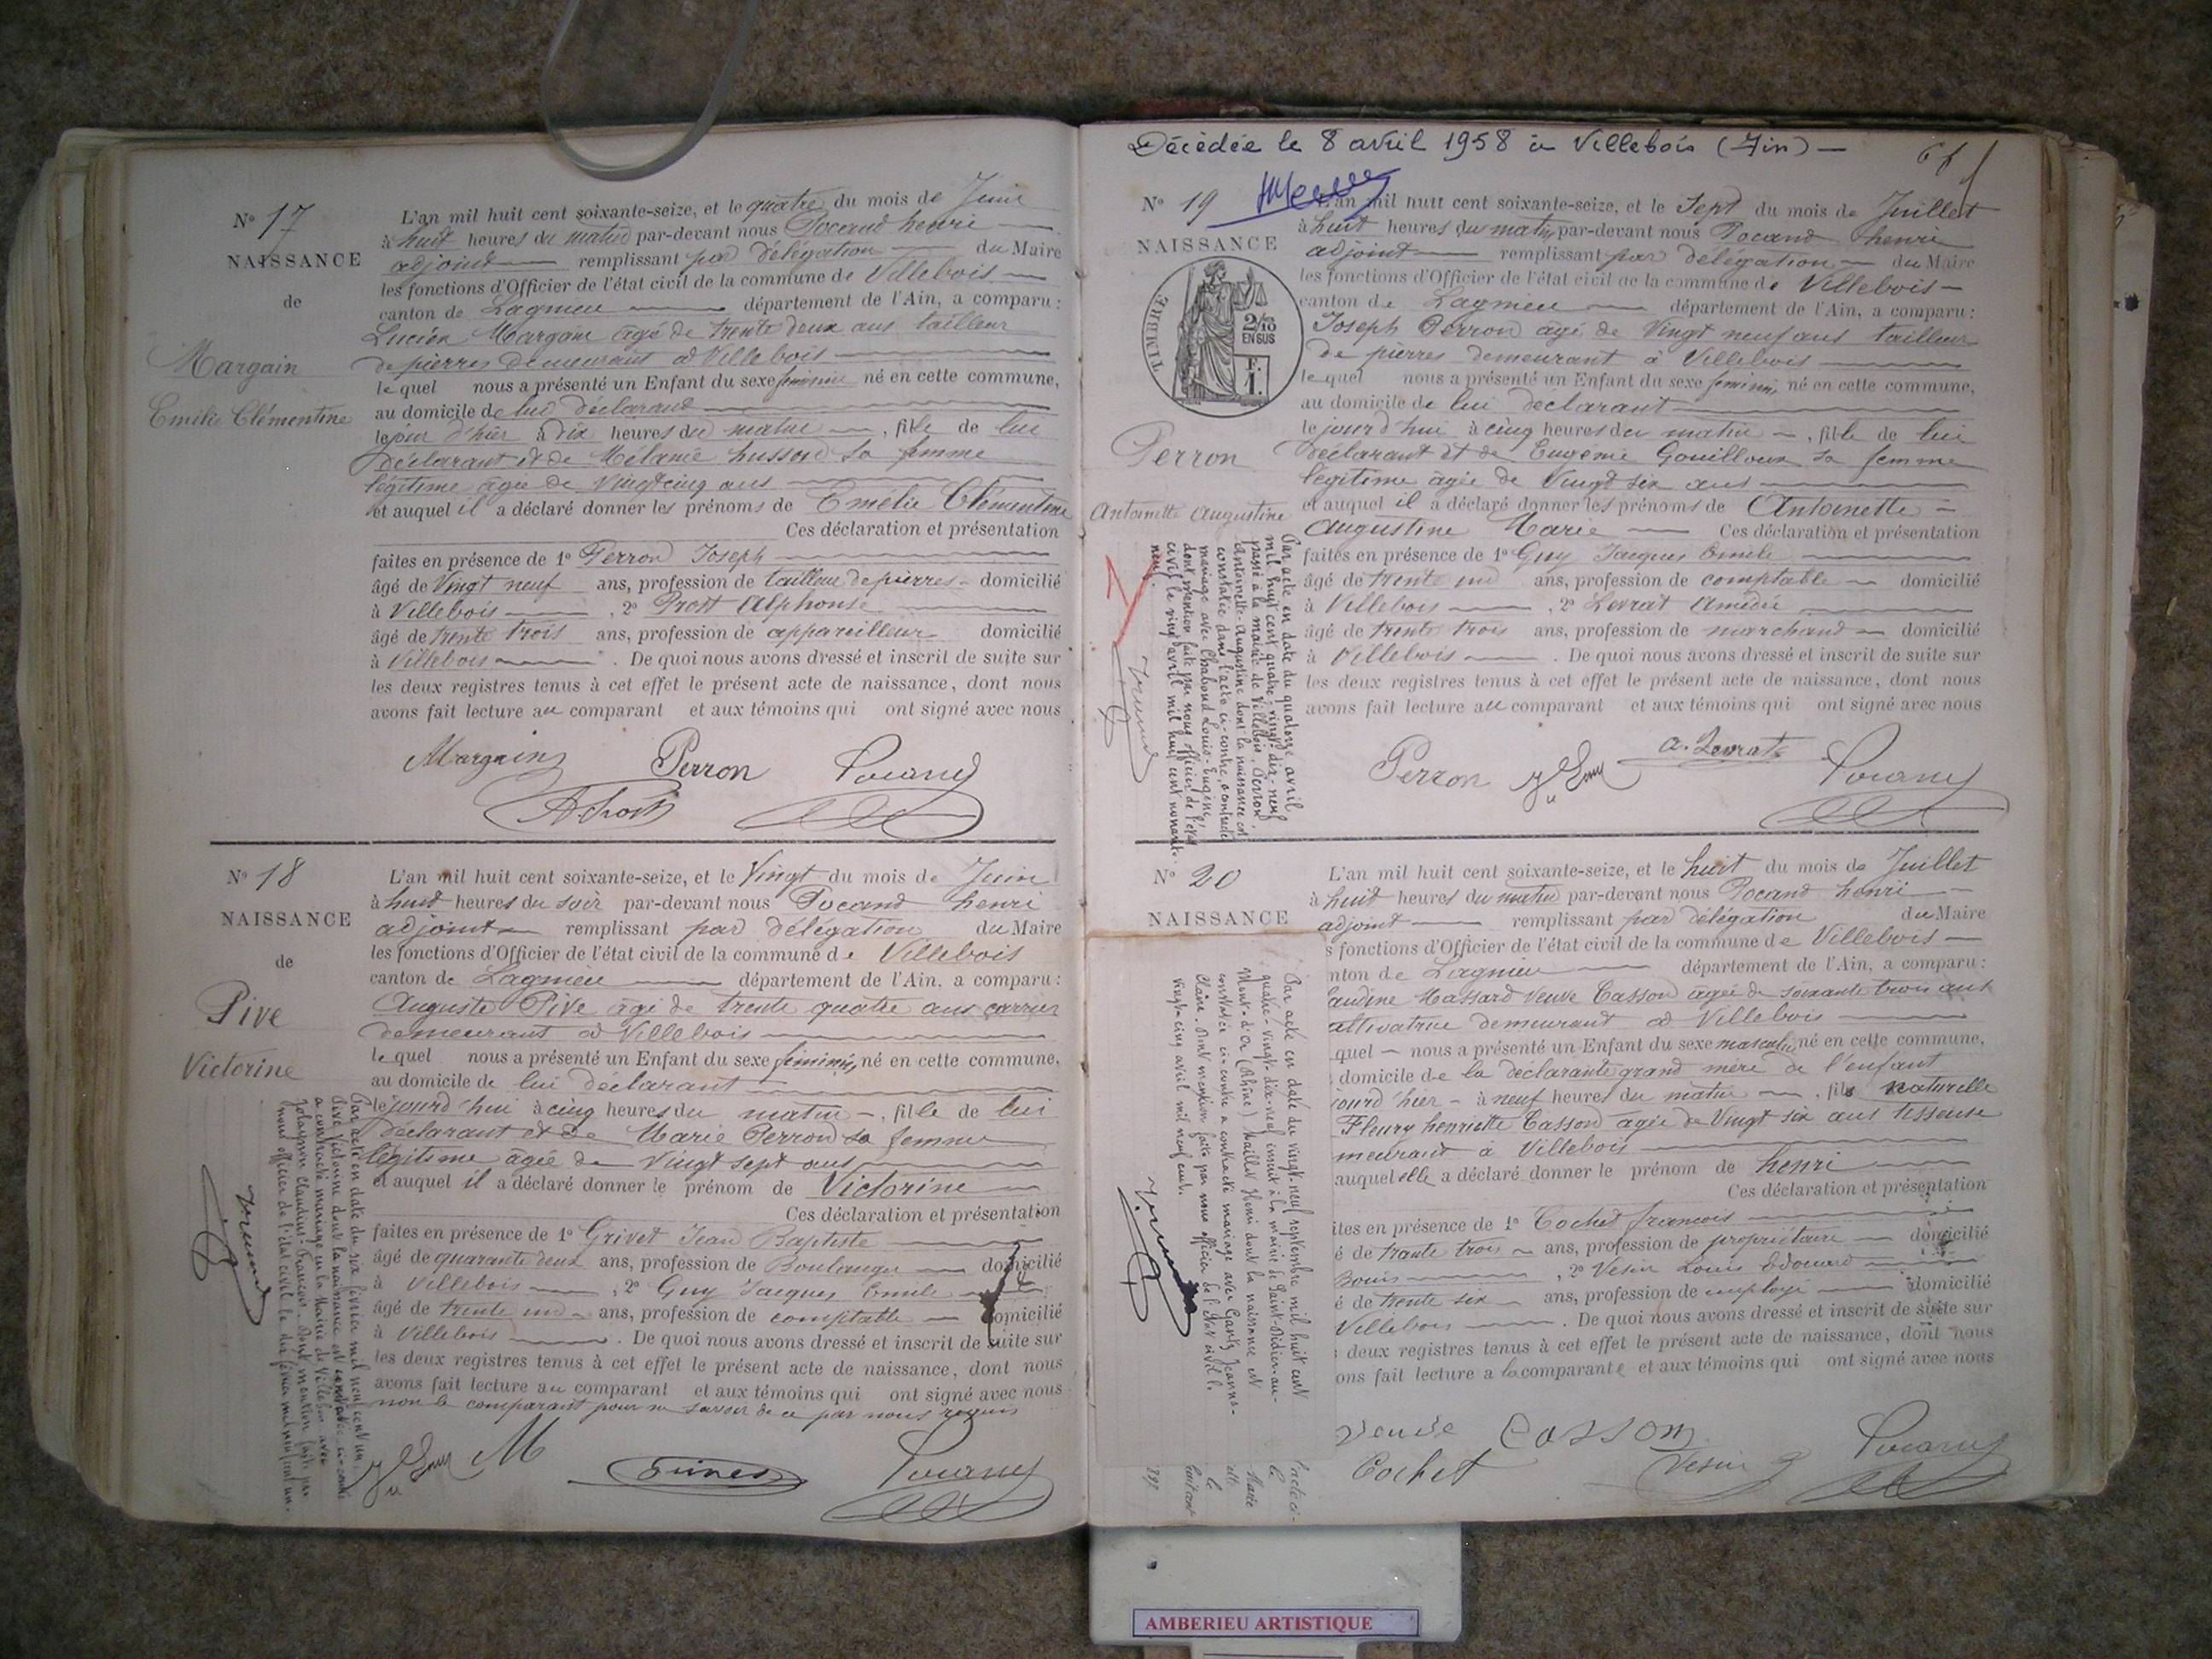 N° 17
NAISSANCE
de
Margain
Emélie Clémentine
L'an mil huit cent soixante-seize, et le quatre du mois de Juin
à huit heures du matin par-devant nous Pocand henri
adjoint remplissant par délégation du Maire
les fonctions d'Officier de l'état civil de la commune de Villebois
canton de Lagnieu département de l'Ain, a comparu :
Lucien Margain âgé de trente deux ans tailleur
de pierres demeurant à Villebois
lequel nous a présenté un Enfant du sexe féminin né en cette commune,
au domicile de lui déclarant
le jour d'hier à dix heures du matin, fille de lui
déclarant et de Mélanie hussond sa femme
légitime âgée de Vingt cinq ans
et auquel il a déclaré donner les prénoms de Emélie Clémentine
Ces déclaration et présentation
faites en présence de 1° Perron Joseph
âgé de Vingt neuf ans, profession de tailleur de pierres domicilié
à Villebois, 2° Prost Alphonse
âgé de trente trois ans, profession de appareilleur domicilié
à Villebois. De quoi nous avons dressé et inscrit de suite sur
les deux registres tenus à cet effet le présent acte de naissance, dont nous
avons fait lecture au comparant et aux témoins qui ont signé avec nous
Margain Perron Pocand
A. Prost
N° 18
NAISSANCE
de
Pive
Victorine
L'an mil huit cent soixante-seize, et le Vingt du mois de Juin
à huit heures du soir par-devant nous Pocand henri
adjoint remplissant par délégation du Maire
les fonctions d'Officier de l'état civil de la commune de Villebois
canton de Lagnieu département de l'Ain, a comparu :
Auguste Pive âgé de trente quatre ans carrier
demeurant à Villebois
lequel nous a présenté un Enfant du sexe féminin, né en cette commune,
au domicile de lui déclarant
le jourd'hui à cinq heures du matin, fille de lui
déclarant et de Marie Perrond sa femme
légitime âgée de Vingt sept ans
et auquel il a déclaré donner le prénom de Victorine
Ces déclaration et présentation
faites en présence de 1° Grivet Jean Baptiste
âgé de quarante deux ans, profession de Boulanger domicilié
à Villebois, 2° Guy Jacques Emile
âgé de trente un ans, profession de comptable domicilié
à Villebois. De quoi nous avons dressé et inscrit de suite sur
les deux registres tenus à cet effet le présent acte de naissance, dont nous
avons fait lecture au comparant et aux témoins qui ont signé avec nous
non le comparant pour ne savoir de ce par nous requis
Par acte en date du six février mil neuf cent un,
Pive Victorine dont la naissance est constatée ci-contre
a contracté mariage en la Mairie de Villebois avec
Claudius François. Dont mention faite par
nous officier de l'état civil le dix février mil neuf cent un.
J E Guy Pocand
Décédée le 8 avril 1958 à Villebois (Ain)
N° 19
NAISSANCE
TIMBRE
2/10
EN SUS
F.
1.
Perron
Antoinette Augustine
L'an mil huit cent soixante-seize, et le Sept du mois de Juillet
à huit heures du matin par-devant nous Pocand henri
adjoint remplissant par délégation du Maire
les fonctions d'Officier de l'état civil de la commune de Villebois
canton de Lagnieu département de l'Ain, a comparu :
Joseph Perron âgé de Vingt neuf ans tailleur
de pierres demeurant à Villebois
lequel nous a présenté un Enfant du sexe féminin, né en cette commune,
au domicile de lui déclarant
le jourd'hui à cinq heures du matin, fille de lui
déclarant et de Eugenie Gouilloux sa femme
légitime âgée de Vingt six ans
et auquel il a déclaré donner les prénoms de Antoinette
Augustine Marie Ces déclaration et présentation
faites en présence de 1° Guy Jacques Emile
âgé de trente un ans, profession de comptable domicilié
à Villebois, 2° Levrat Amédée
âgé de trente trois ans, profession de marchand domicilié
à Villebois. De quoi nous avons dressé et inscrit de suite sur
les deux registres tenus à cet effet le présent acte de naissance, dont nous
avons fait lecture au comparant et aux témoins qui ont signé avec nous
Par acte en date du quatorze avril
mil huit cent quatre-vingt-dix-neuf
passé à la mairie de Villebois, Perron
Antoinette-Augustine dont la naissance est
constatée dans l'acte ci-contre, a contracté
mariage avec Chaboud Louis-Eugène,
dont mention faite par nous officier de l'état
civil le vingt avril mil huit cent nonante-
neuf.
Perron J E Guy A. Levrat Pocand
N° 20
NAISSANCE
L'an mil huit cent soixante-seize, et le huit du mois de Juillet
à huit heures du matin par-devant nous Pocand henri
adjoint remplissant par délégation du Maire
s fonctions d'Officier de l'état civil de la commune de Villebois
nton de Lagnieu département de l'Ain, a comparu :
audine Massard Veuve Casson âgée de soixante trois ans
ultivatrice demeurant à Villebois
quel nous a présenté un Enfant du sexe masculin, né en cette commune,
domicile de la déclarante grand mère de l'enfant
jourd'hier à neuf heures du matin, fils naturelle
Fleury henriette Casson âgée de Vingt six ans tisseuse
meurant à Villebois
auquel elle a déclaré donner le prénom de henri
Ces déclaration et présentation
ites en présence de 1° Cochet francois
é de trente trois ans, profession de propriétaire domicilié
Bouis, 2° Vesin Louis Edouard
é de trente six ans, profession de employé domicilié
Villebois. De quoi nous avons dressé et inscrit de suite sur
deux registres tenus à cet effet le présent acte de naissance, dont nous
ons fait lecture a la comparante et aux témoins qui ont signé avec nous
Par acte en date du vingt-neuf septembre mil huit cent
quatre-vingt-dix-neuf inscrit à la mairie de Saint-Didier-au-
Mont-d'Or (Rhône) Maillet Henri dont la naissance est
constatée ci-contre a contracté mariage avec Jeanne-
Claire. Dont mention faite par nous officier de l'état civil le
vingt-cinq avril mil neuf cent.
veuve Casson
Cochet Vesin Pocand
AMBERIEU ARTISTIQUE